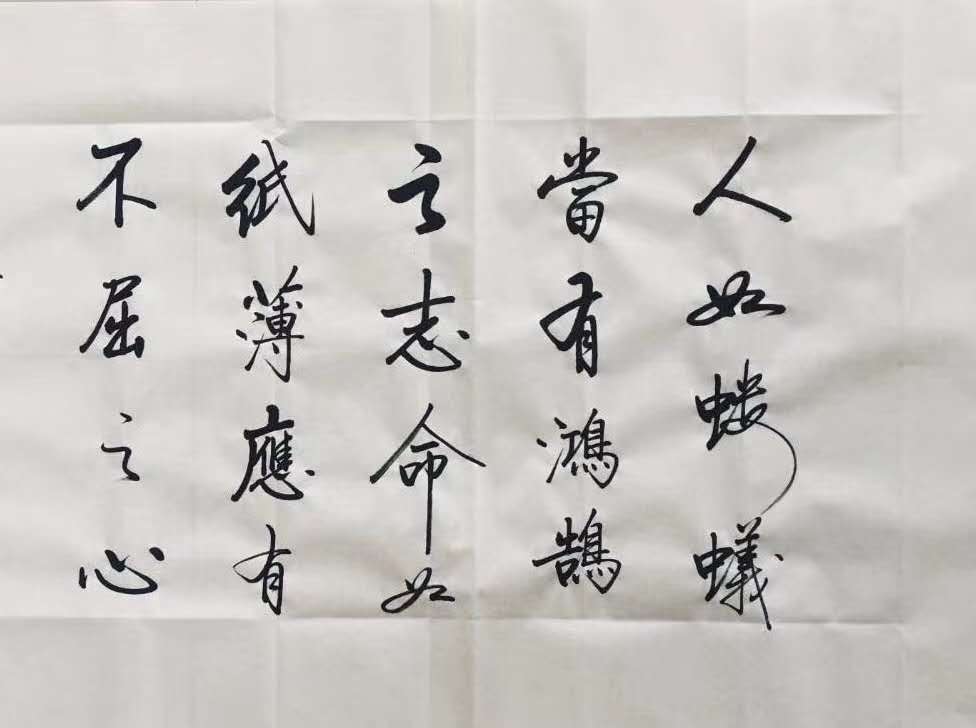 人如蝼蟻
當有鴻鵠
之志命如
紙薄應有
不屈之心